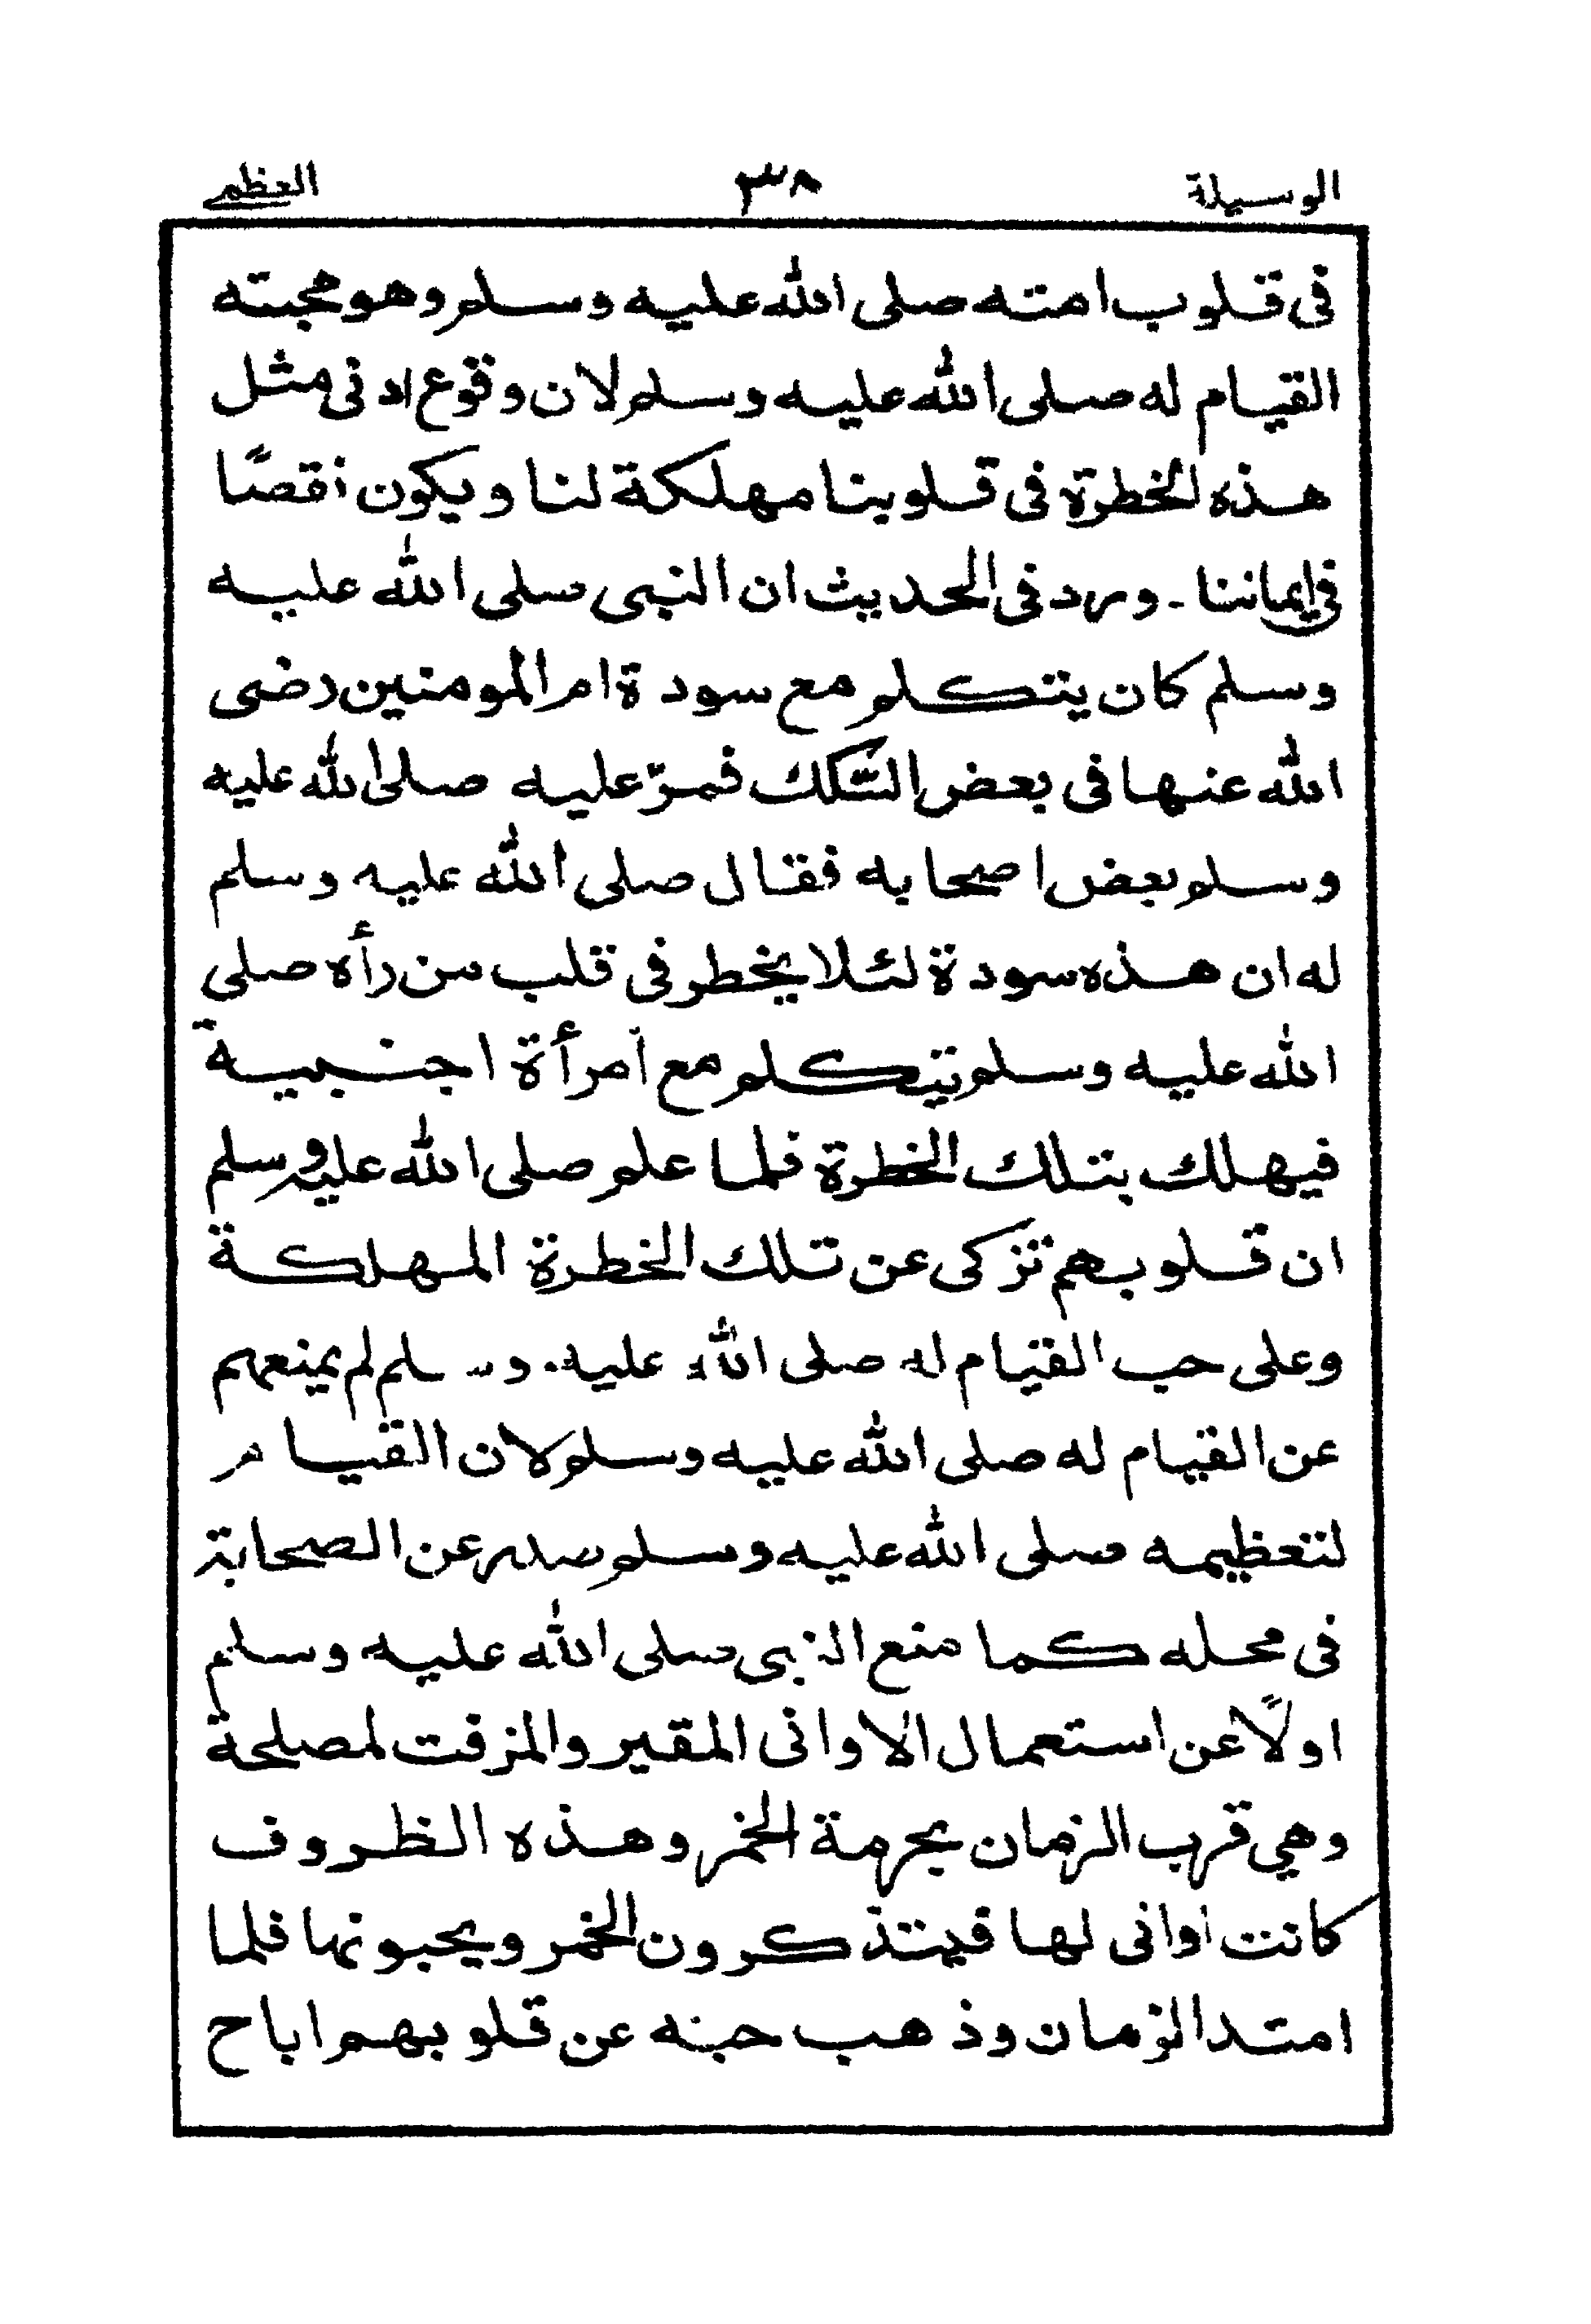 الوسيلة ٣٨ العظمى
فى قلوب امته صلى الله عليه وسلم وهو محبته
القيام له صلى الله عليه وسلم لان وقوع ادنى مثل
هذه الخطرة فى قلوبنا مهلكة لنا ويكون نقصًا
فى ايماننا ـ ورد فى الحديث ان النبى صلى الله عليه
وسلم كان يتكلم مع سودة ام المومنين رضى
الله عنها فى بعض السّكك فمرّ عليه صلى الله عليه
وسلم بعض اصحابه فقال صلى الله عليه وسلم
له ان هذه سودة لئلا يخطر فى قلب من رأه صلى
الله عليه وسلم يتكلم مع امرأة اجنبية
فيهلك بتلك الخطرة فلما علم صلى الله عليه وسلم
ان قلوبهم تزكى عن تلك الخطرة المهلكة
وعلى حب القيام له صلى الله عليه وسلم لم يمنعهم
عن القيام له صلى الله عليه وسلم لان القيام
لتعظيمه صلى الله عليه وسلم صدر عن الصحابة
فى محله كما منع النبى صلى الله عليه وسلم
اولًا عن استعمال الاوانى المقير والمزفت لمصلحة
وهي قرب الزمان بحرمة الخمر وهذه الظروف
كانت اوانى لها فيتذكرون الخمر ويحبونها فلما
امتد الزمان وذهب حبه عن قلوبهم اباح